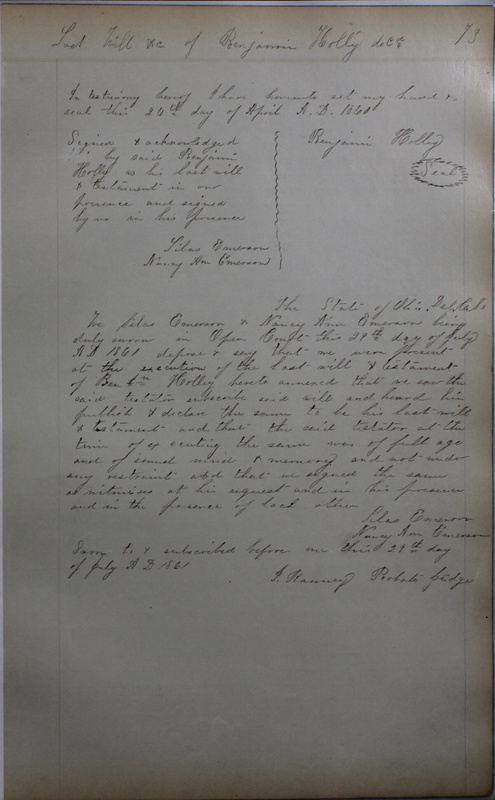 Last Will &c of Benjamin Holly decd 73
In testimony hereof I have hereunto set my hand &
seal this 24th day of April A.D. 1860
Signed & acknowledged
by said Benjamin
Holly as his last will
& testament in our
presence and signed
by us in his presence
Benjamin Holley
Seal
Silas Emerson
Nancy Ann Emerson
The State of Ohio, Del. Co. ss
We Silas Emerson & Nancy Ann Emerson being
duly sworn in Open Court this 29th day of July
AD 1861 depose & say that we were present
at the execution of the last will & testament
of Benjn Holley hereto annexed that we saw the
said testator subscribe said will and heard him
publish & declare the same to be his last will
& testament and that the said testator at the
time of executing the same was of full age
and of sound mind & memory and not under
any restraint and that we signed the same
as witnesses at his request and in his presence
and in the presence of each other
Silas Emerson
Nancy Ann Emerson
Sworn to & subscribed before me this 29th day
of July AD 1861
Probate Judge